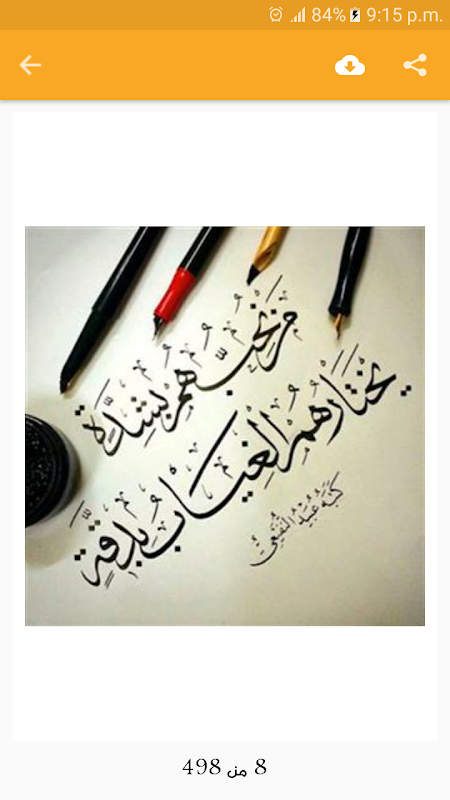 84% 9:15 p.m.
من نحبهم بشدة
يختارهم الغياب بدقة
كتبه عبيد النفيعي
8 من 498